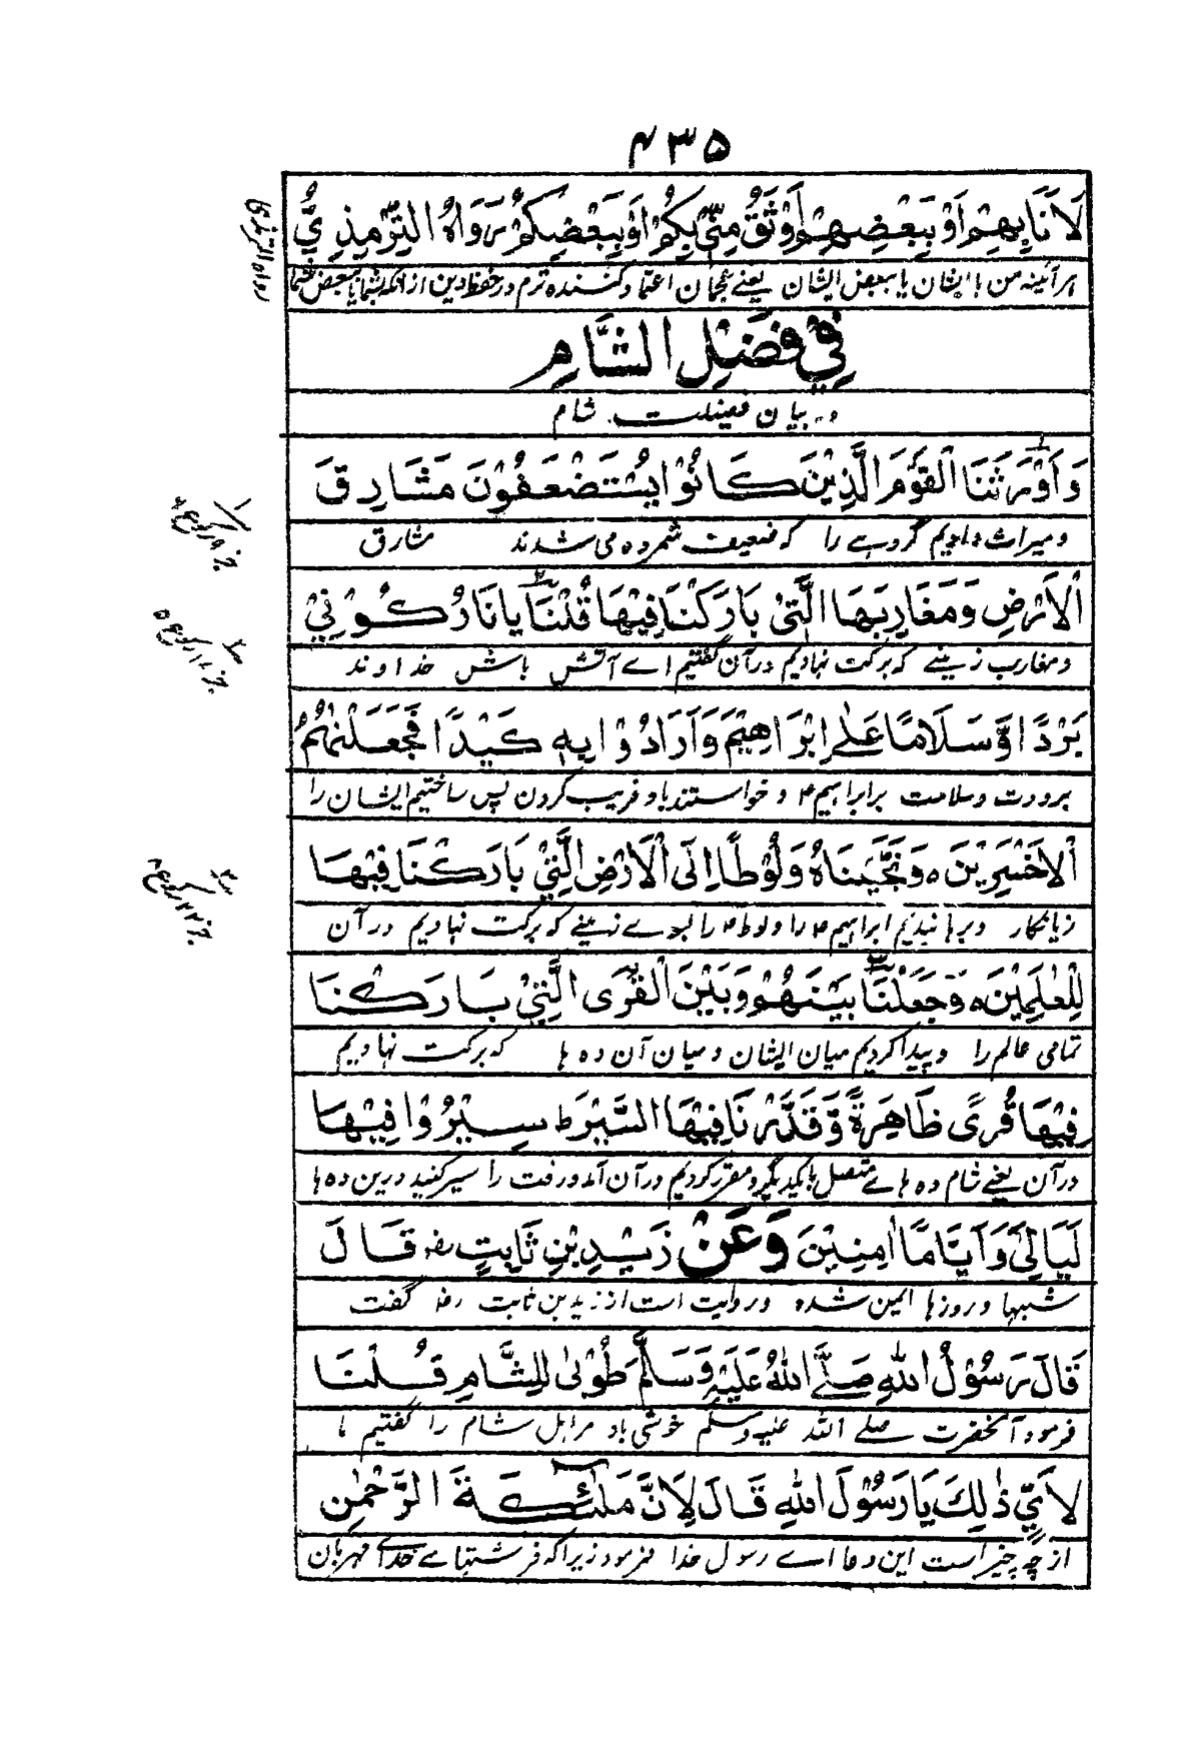 ۴۳۵
لَاَنَا بِهِمْ اَوْ بِبَعْضِهِمْ اَوْثَقُ مِنِّیْ بِکُمْ اَوْ بِبَعْضِکُمْ رَوَاهُ التِّرْمِذِیُّ
رواه الترمذی
هر آئینه من باایشان یا ببعض ایشان یعنے عجمان اعتماد کننده ترم در حفظ دین از آنکه بشما یا ببعض شما
فِیْ فَضْلِ الشَّامِ
در بیان فضیلت شام
وَ اَوْرَثْنَا الْقَوْمَ الَّذِیْنَ کَانُوْا یُسْتَضْعَفُوْنَ مَشَارِقَ
و میراث دادیم گروہے را که ضعیف شمرده می شدند مشارق
الْاَرْضِ وَمَغَارِبَهَا الَّتِیْ بَارَکْنَا فِیْهَا قُلْنَا یَا نَارُ کُوْنِیْ
و مغارب زمینے که برکت نهادیم در آن گفتیم اے آتش باش خداوند
بَرْدًا وَّسَلَامًا عَلٰی اِبْرَاهِیْمَ وَاَرَادُوْا بِهٖ کَیْدًا فَجَعَلْنٰهُمُ
برودت و سلامت بر ابراہیم و خواستند باو فریب کردن پس ساختیم ایشان را
الْاَخْسَرِیْنَ ه وَنَجَّیْنَاهُ وَلُوْطًا اِلَی الْاَرْضِ الَّتِیْ بَارَکْنَا فِیْهَا
زیانکار و برہانیدیم ابراہیم را و لوط را بسوے زمینے که برکت نهادیم در آن
لِلْعٰلَمِیْنَ ه وَجَعَلْنَا بَیْنَهُمْ وَبَیْنَ الْقُرَی الَّتِیْ بَارَکْنَا
تمامی عالم را و پیدا کردیم میان ایشان و میان آن ده ها که برکت نهادیم
فِیْهَا قُرًی ظَاهِرَةً وَّقَدَّرْنَا فِیْهَا السَّیْرَ ط سِیْرُوْا فِیْهَا
در آن یعنے شام ده ہاے متصل بایکدیگر و مقرر کردیم در آن آمد و رفت را سیر کنید درین ده ها
لَیَالِیَ وَاَیَّامًا اٰمِنِیْنَ وَعَنْ زَیْدِ بْنِ ثَابِتٍ رض قَالَ
شبها و روزها ایمن شده و روایت است از زید بن ثابت رض گفت
قَالَ رَسُوْلُ اللهِ صَلَّی اللهُ عَلَیْهِ وَسَلَّمَ طُوْبٰی لِلشَّامِ قُلْنَا
فرمود آنحضرت صلے الله علیه وسلم خوشی باد مر اہل شام را گفتیم ما
لِاَیٍّ ذٰلِکَ یَا رَسُوْلَ اللهِ قَالَ لِاَنَّ مَلٰئِکَةَ الرَّحْمٰنِ
از چه چیز است این دعا اے رسول خدا فرمود زیرا که فرشتهاے خداے مهربان